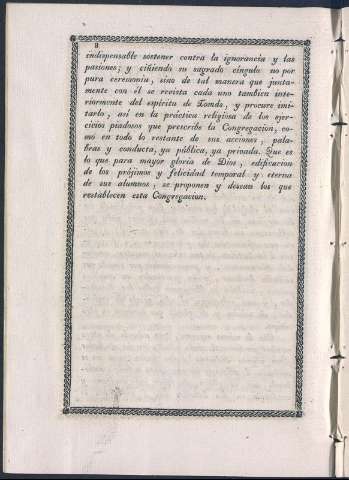 8
indispensable sostener contra la ignorancia y las
pasiones; y ciñiendo su sagrado cíngulo no por
pura ceremonia, sino de tal manera que junta-
mente con él se revista cada uno tambien inte-
riormente del espíritu de Tomás, y procure imi-
tarlo, así en la práctica religiosa de los ejer-
cicios piadosos que prescribe la Congregacion, co-
mo en todo lo restante de sus acciones, pala-
bras y conducta, ya pública, ya privada. Que es
lo que para mayor gloria de Dios, edificacion
de los prójimos y felicidad temporal y eterna
de sus alumnos, se proponen y desean los que
restablecen esta Congregacion.